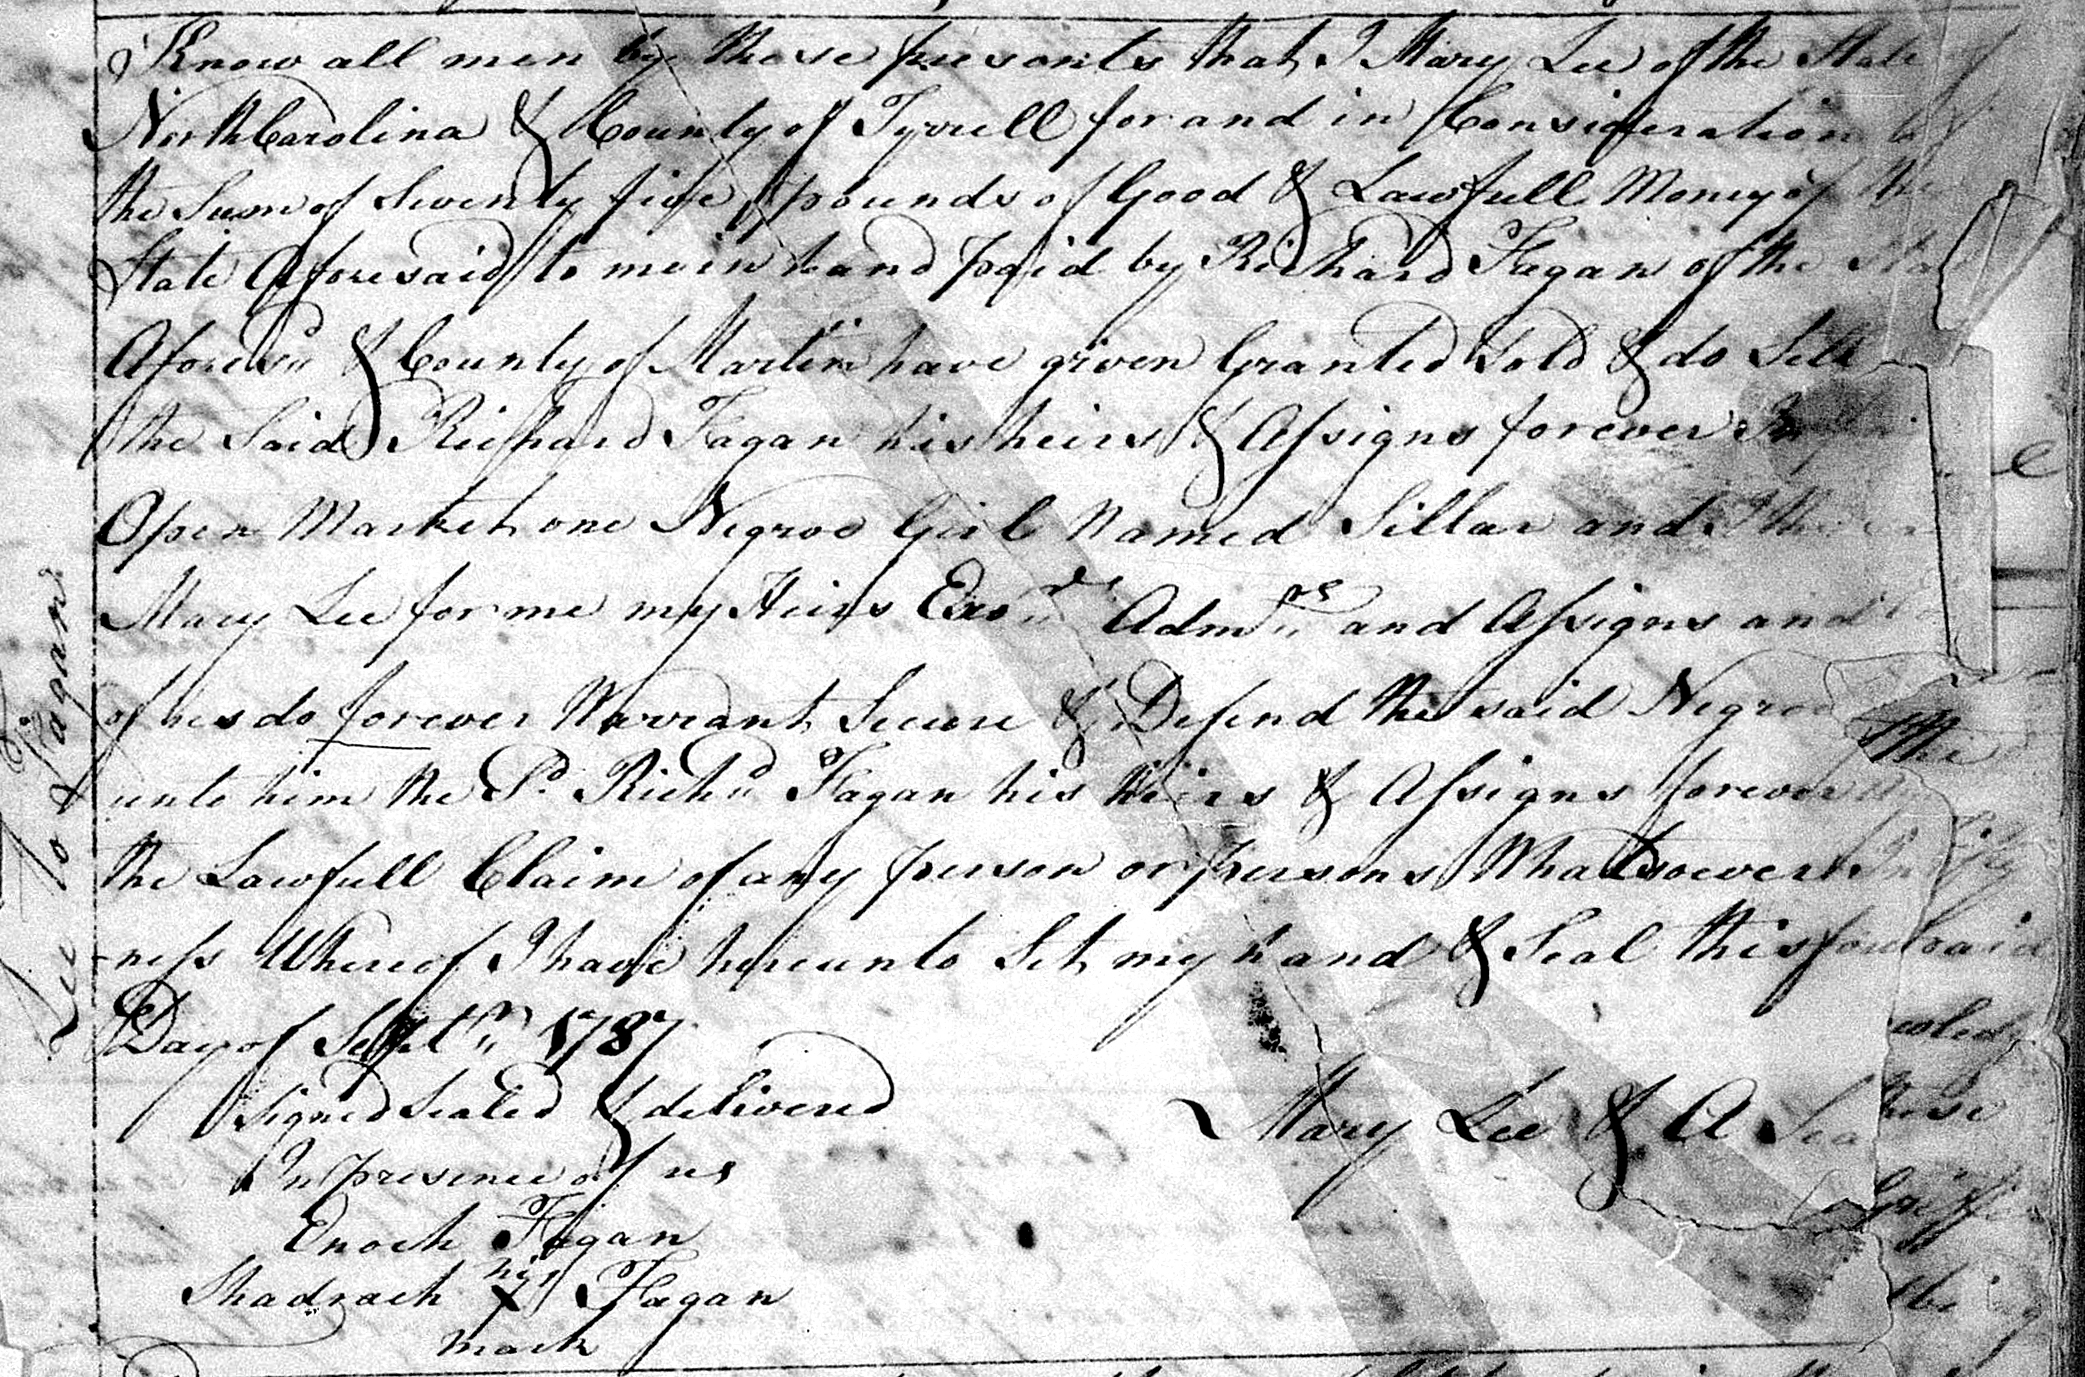 Know all men by these presents that I Mary Lee of the State of
North Carolina & County of Tyrrell for and in Consideration of
the Sum of Seventy five pounds of Good & Lawfull Money of the
State Aforesaid to me in hand paid by Richard Fagan of the
Aforesd & County of Martin have given Granted Sold & do Sell
the Said Richard Fagan his heirs & Assigns forever In
Open Market one Negroe Girl Named Sillar and I the
Mary Lee for me my Heirs Exors Admrs and Assigns and
of us do forever Warrant Secure & Defend the said Negroe
unto him the Sd Richd Fagan his Heirs & Assigns forever
the Lawfull Claim of any person or persons Whatsoever In
ness Whereof I have hereunto Set my hand & Seal this
Day of Septr 1787
Signed Sealed & delivered
In presence of us
Mary Lee & A
Enoch Fagan
his
Shadrach X Fagan
mark
Lee to Fagan
the